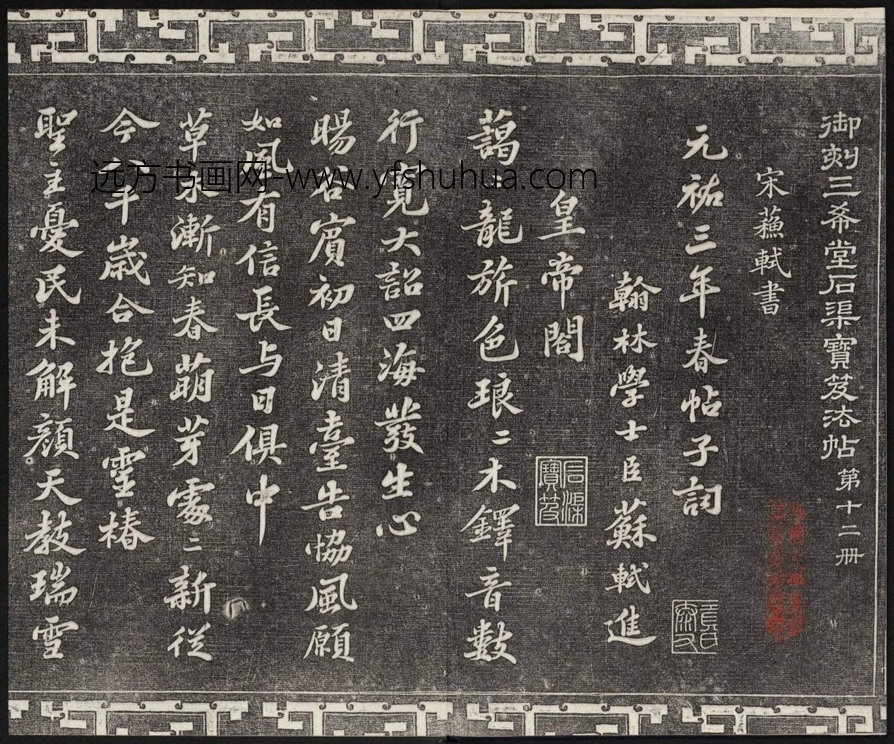 御刻三希堂石渠寶笈法帖第十二冊
宋蘓軾書
元祐三年春帖子詞
翰林學士臣蘇軾進
皇帝閣
石渠寶笈
藹〻龍旂色琅〻木鐸音數
行寬大詔四海發生心
暘谷賓初日清臺告協風願
如風有信長与日俱中
草木漸知春萌芽處〻新從
今八千歲合抱是靈椿
聖主憂民未解顏天教瑞雪
远方书画网 www.yfshuhua.com